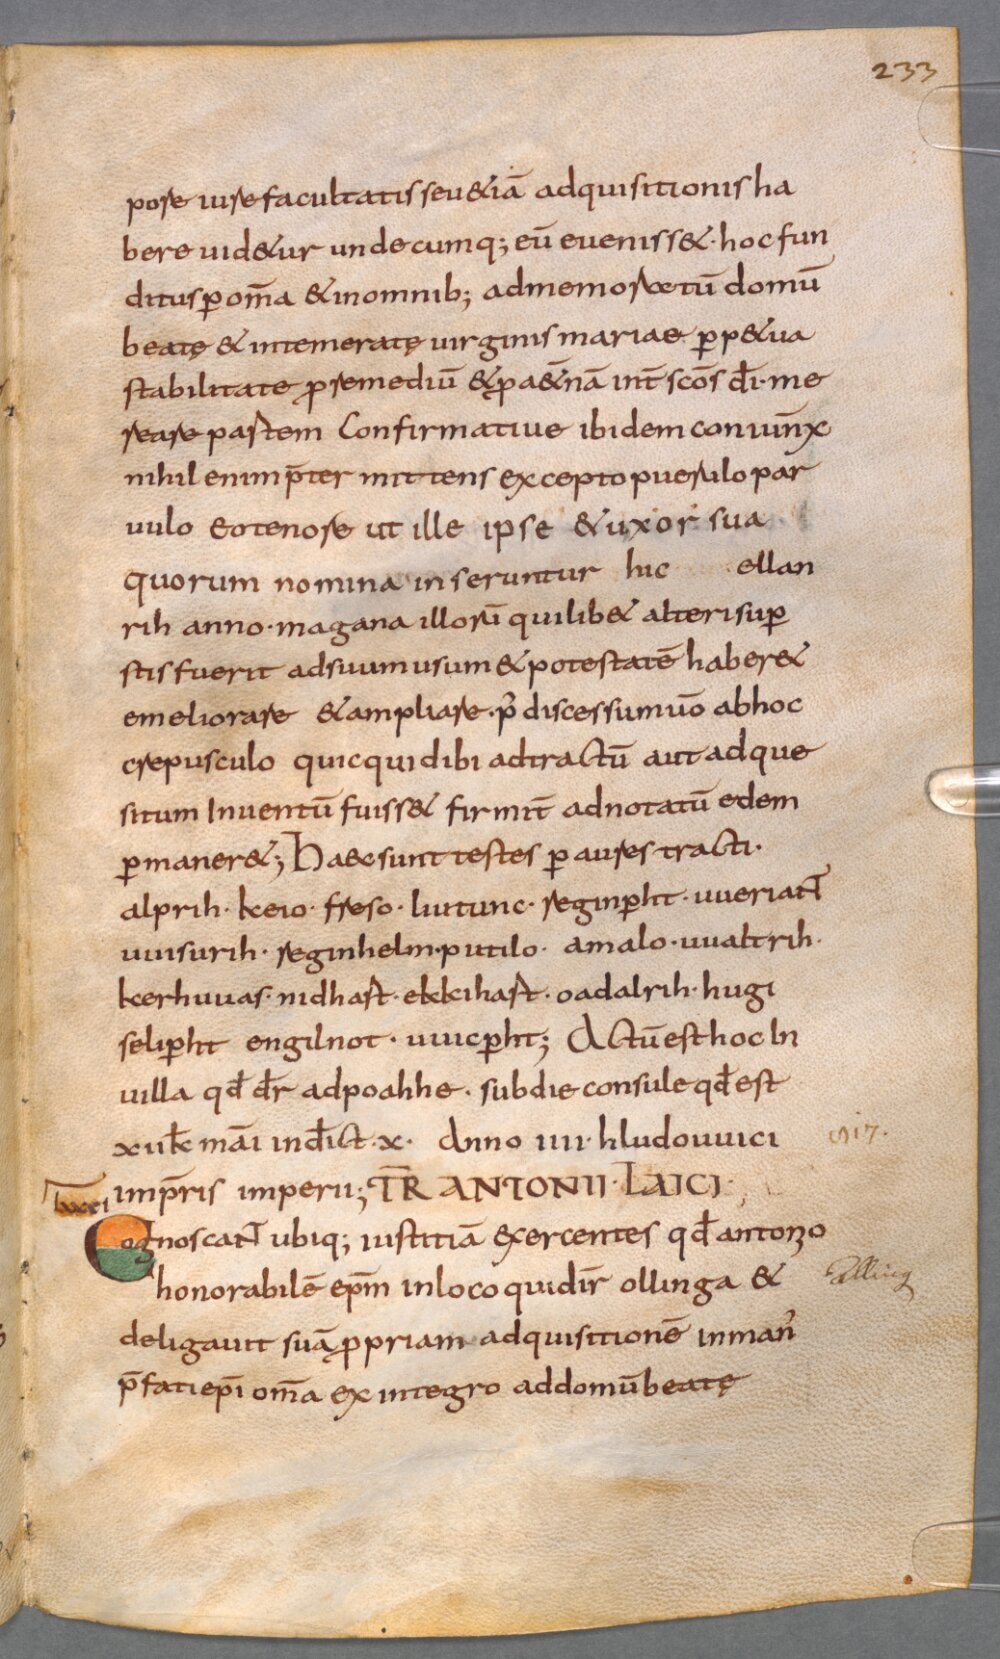 233
pore iure facultatis seu &iā adquisitionis ha
bere uid&ur undecumq; eū eueniss&· hoc fun
ditus p̄ om̄a & in omnib; ad memoratū domū
beatę & intemeratę uirginis mariae p̄p&ua
stabilitate p̄ remediū & p̄ a&n̄ā int̄ sc̄os d̄i· me
reare partem Confirmatiue ibidem coniun̄x
nihil enim p̄ter mittens excepto puerulo par
uulo eo tenore ut ille ipse & uxor sua
quorum nomina inseruntur hic ellan
rih anno· magana illorū quilib& alteri sup̄
stis fuerit ad suum usum & potestatē haber&
emeliorare & ampliare· p̄ discessum uō ab hoc
crepusculo quicquid ibi adtractū aut adque
situm Inuentū fuiss& firmit̄ adnotatū edem
p̄maner&; Haec sunt testes p̄ aures tracti·
alprih· keio· freso· liutunc· reginp̄ht· uueriant̄
uuisurih· reginhelm· putilo· amalo· uualtrih·
kerhuuas· nidhart· ekkihart· oadalrih· hugi
selip̄ht engilnot· uuicp̄ht; Actū est hoc In
uilla qd̄ dr̄ ad poahhe· sub die consule qd̄ est
x uk̄ māi indict̄· x· Anno iiii· hludouuici
817·
imp̄ris imperii; TR̄ ANTONII· LAICI·
lxxxi
Cognoscant̄ ubiq; iustitiā exercentes qd̄ antonio
honorabilē ep̄m in loco qui dir̄ ollinga &
Olling
deligauit suā p̄priam adquisitionē in man̄
p̄fati ep̄i om̄a ex integro ad domū beatę